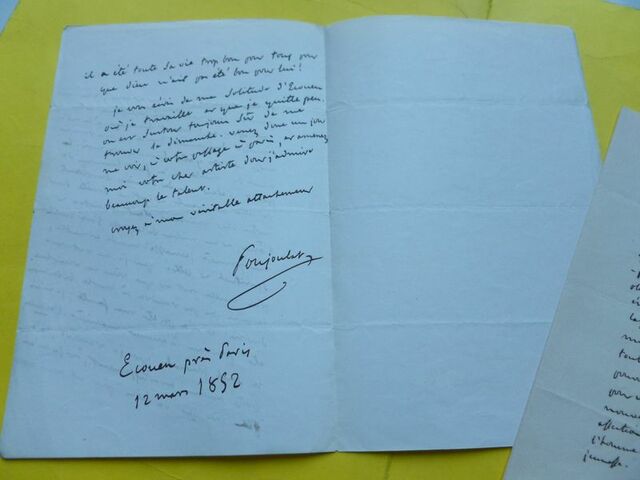 il a été toute sa vie trop bon pour tous pour
que dieu n'ait pas été bon pour lui !
je vous écris de ma solitude d'Ecouen
où je travaille et que je quitte peu.
on est surtout toujours sûr de me
trouver le dimanche. venez donc un jour
me voir, à votre passage à paris, et amenez
moi votre cher artiste dont j'admire
beaucoup le talent.
croyez à mon véritable attachement
Poujoulat
Ecouen près Paris
12 mars 1852
tout
pour
pour
affection
l'homme
jeunesse.